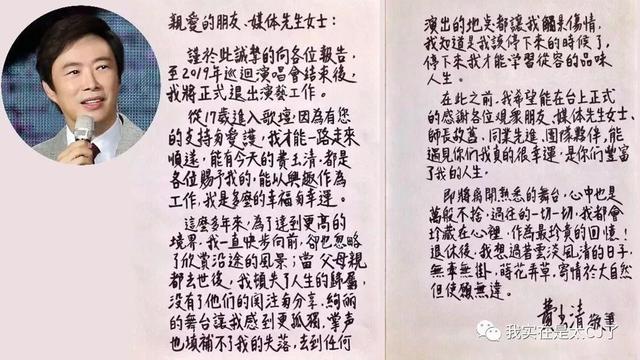 親愛的朋友、媒体先生女士：
謹於此誠摯的向各位報告，
至2019年巡迴演唱會結束後，
我將正式退出演藝工作。
從17歲進入歌壇，因為有您
的支持與愛護，我才能一路走來
順遂，能有今天的費玉清，都是
各位賜予我的，能以興趣作為
工作，我是多麼的幸福与幸運。
這麼多年來，為了達到更高的
境界，我一直快步向前，卻也忽略
了欣賞沿途的風景；當父母親
都去世後，我頓失了人生的歸屬，
沒有了他們的関注与分享，絢麗
的舞台讓我感到更孤獨，掌声
也填補不了我的失落，去到任何
演出的地点都讓我觸景傷情，
我知道是我該停下來的時候了，
停下來我才能学習從容的品味
人生。
在此之前，我希望能在台上正式
的感謝各位观衆朋友、媒体先生女士、
師長故舊、同業先進、團隊夥伴，能
遇見你們我真的很幸運，是你們豐富
了我的人生，
即將离開熟悉的舞台，心中也是
萬般不捨，過往的一切一切，我都會
珍藏在心裡，作為最珍貴的回憶！
退休後，我想過著雲淡風清的日子，
無牽無掛，蒔花弄草，寄情於大自然
但使願無違。
費玉清 敬筆
我实在是太CJ了